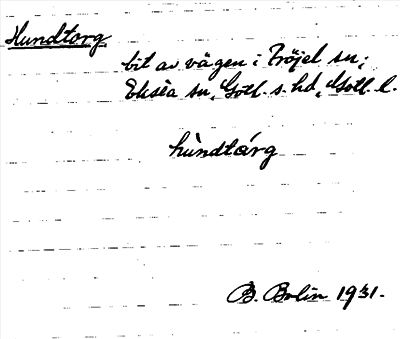 Hundtorg
bit av vägen i Fröjel sn;
Eksta sn, Gotl. s. hd, Gotl. l.
hùndtárg
B. Bolin 1931.